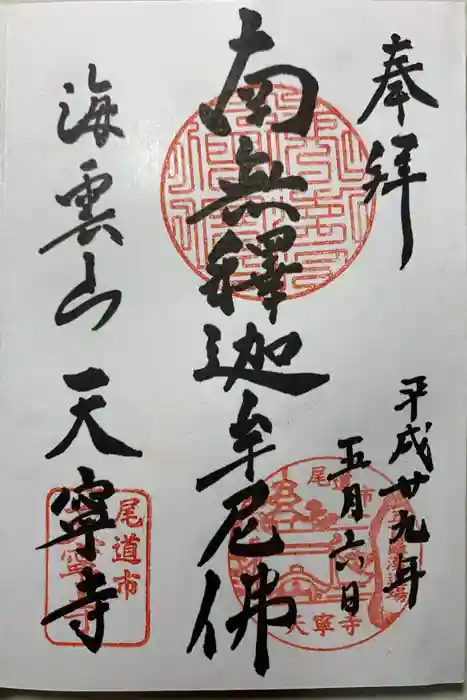 奉拝
平成廿九年
五月六日
南無釋迦牟尼佛
海雲山
天寧寺
尾道市
尾道市
天寧寺